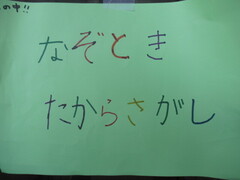 の中!!
なぞとき
たからさがし